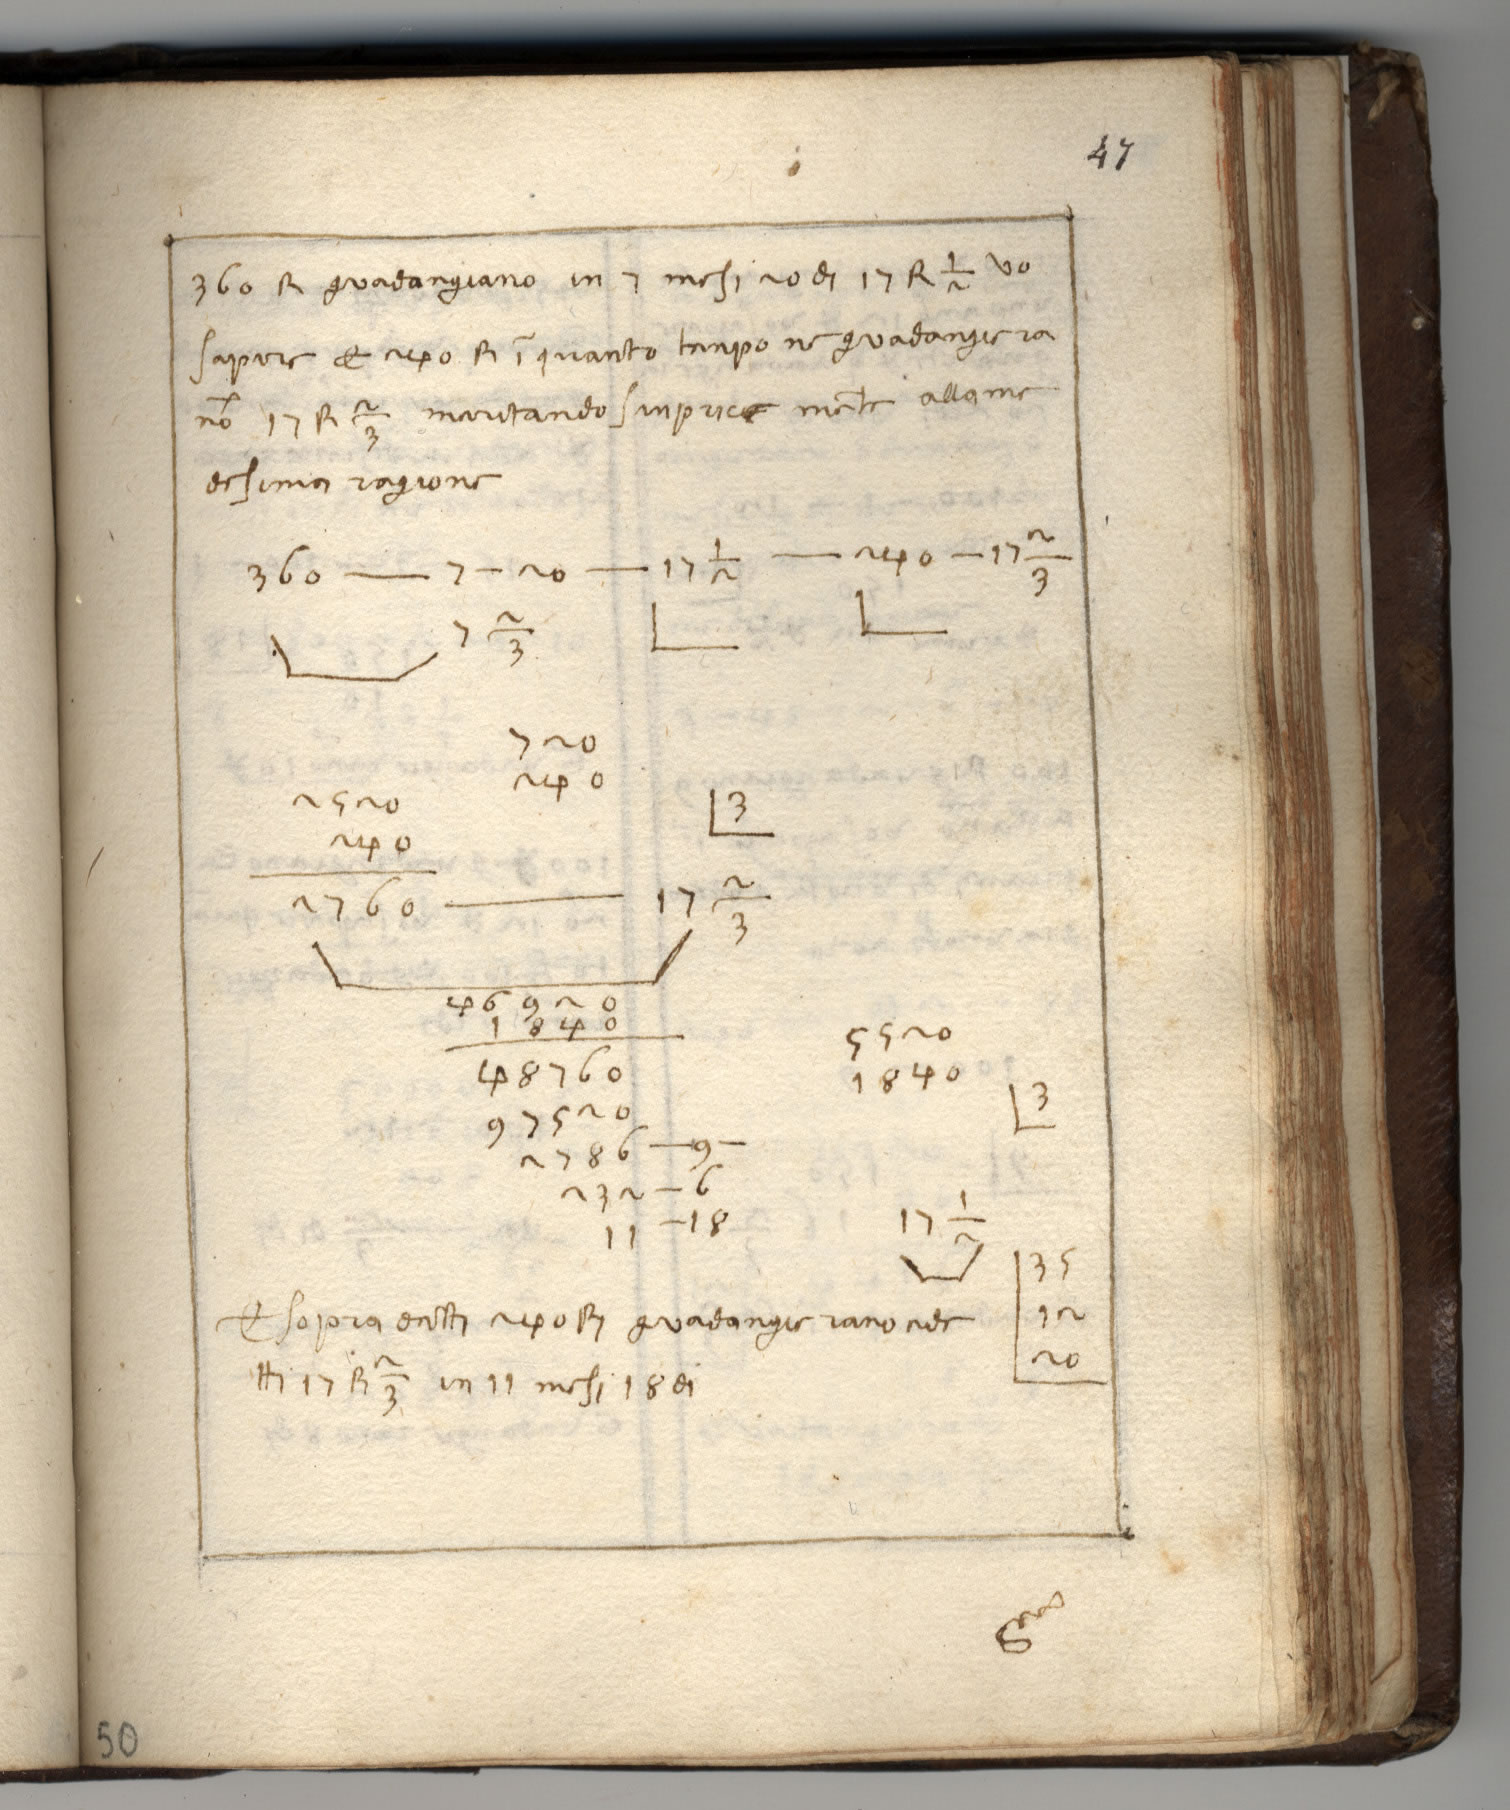 47
360 R guadangiano in 7 mesi 20 di 17 R 1/2 vo
sapere & 240 R ī quanto tenpo ne guadangiera
nō 17 R 2/3 meritando sinprice mēte allame
desima ragione
360 — 7 – 20 — 17 1/2 — 240 – 17 2/3
7 2/3
720
240
2520
240
3
2760 — 17 2/3
46920
1840
48760
5520
1840
3
97520
2786 — 9 –
232 – 6
11 – 18
17 1/2
35
12
20
& sopra detti 240 R guadangie rano e de
tti 17 R 2/3 in 11 mesi 18 di
50